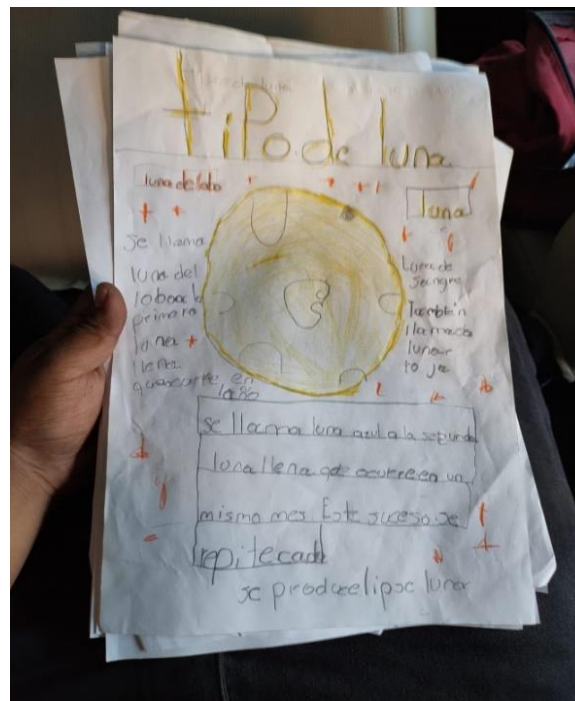 tipo de luna
luna de lobo
se llama
luna del
lobo a la
primera
luna
llena
que ocurre en
luna
Luna de
sangre
También
llamada
lunar
ro ja
se llama luna azul a la segunda
luna llena que ocurre en un
mismo mes Este suceso se
repite cada
se produce elipse lunar